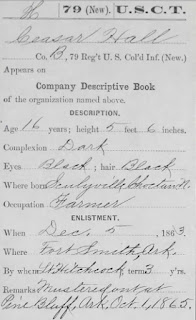 H | 79 (New). | U.S.C.T.
Ceasar Hall
Co. B, 79 Reg't U. S. Col'd Inf. (New.)
Appears on
Company Descriptive Book
of the organization named above.
DESCRIPTION.
Age 16 years; height 5 feet 6 inches.
Complexion Dark
Eyes Black; hair Black
Where born Scullyville, Choctaw N.
Occupation Farmer
ENLISTMENT.
When Dec. 5, 1863.
Where Fort Smith, Ark.
By whom Hitchcock term 3 y'rs.
Remarks Mustered out at
Pine Bluff, Ark, Oct. 1, 1865.